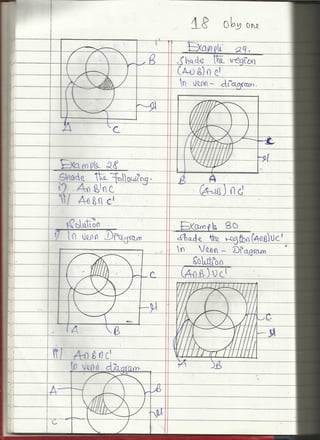 18 Oby one
B
A
C
Example 28
Shade the following.
i) A∩B'∩C
ii) A∩B∩C'
Solution
i) In Venn Diagram
C
μ
A
B
ii) A∩B∩C'
in venn diagram
A
B
C
μ
Example 29.
Shade the region
(A∪B)∩C'
In venn-diagram.
C
μ
B
A
(A∪B)∩C'
Example 30
Shade the region (A∩B)∪C'
in Venn-Diagram
Solution
(A∩B)∪C'
C
μ
A
B